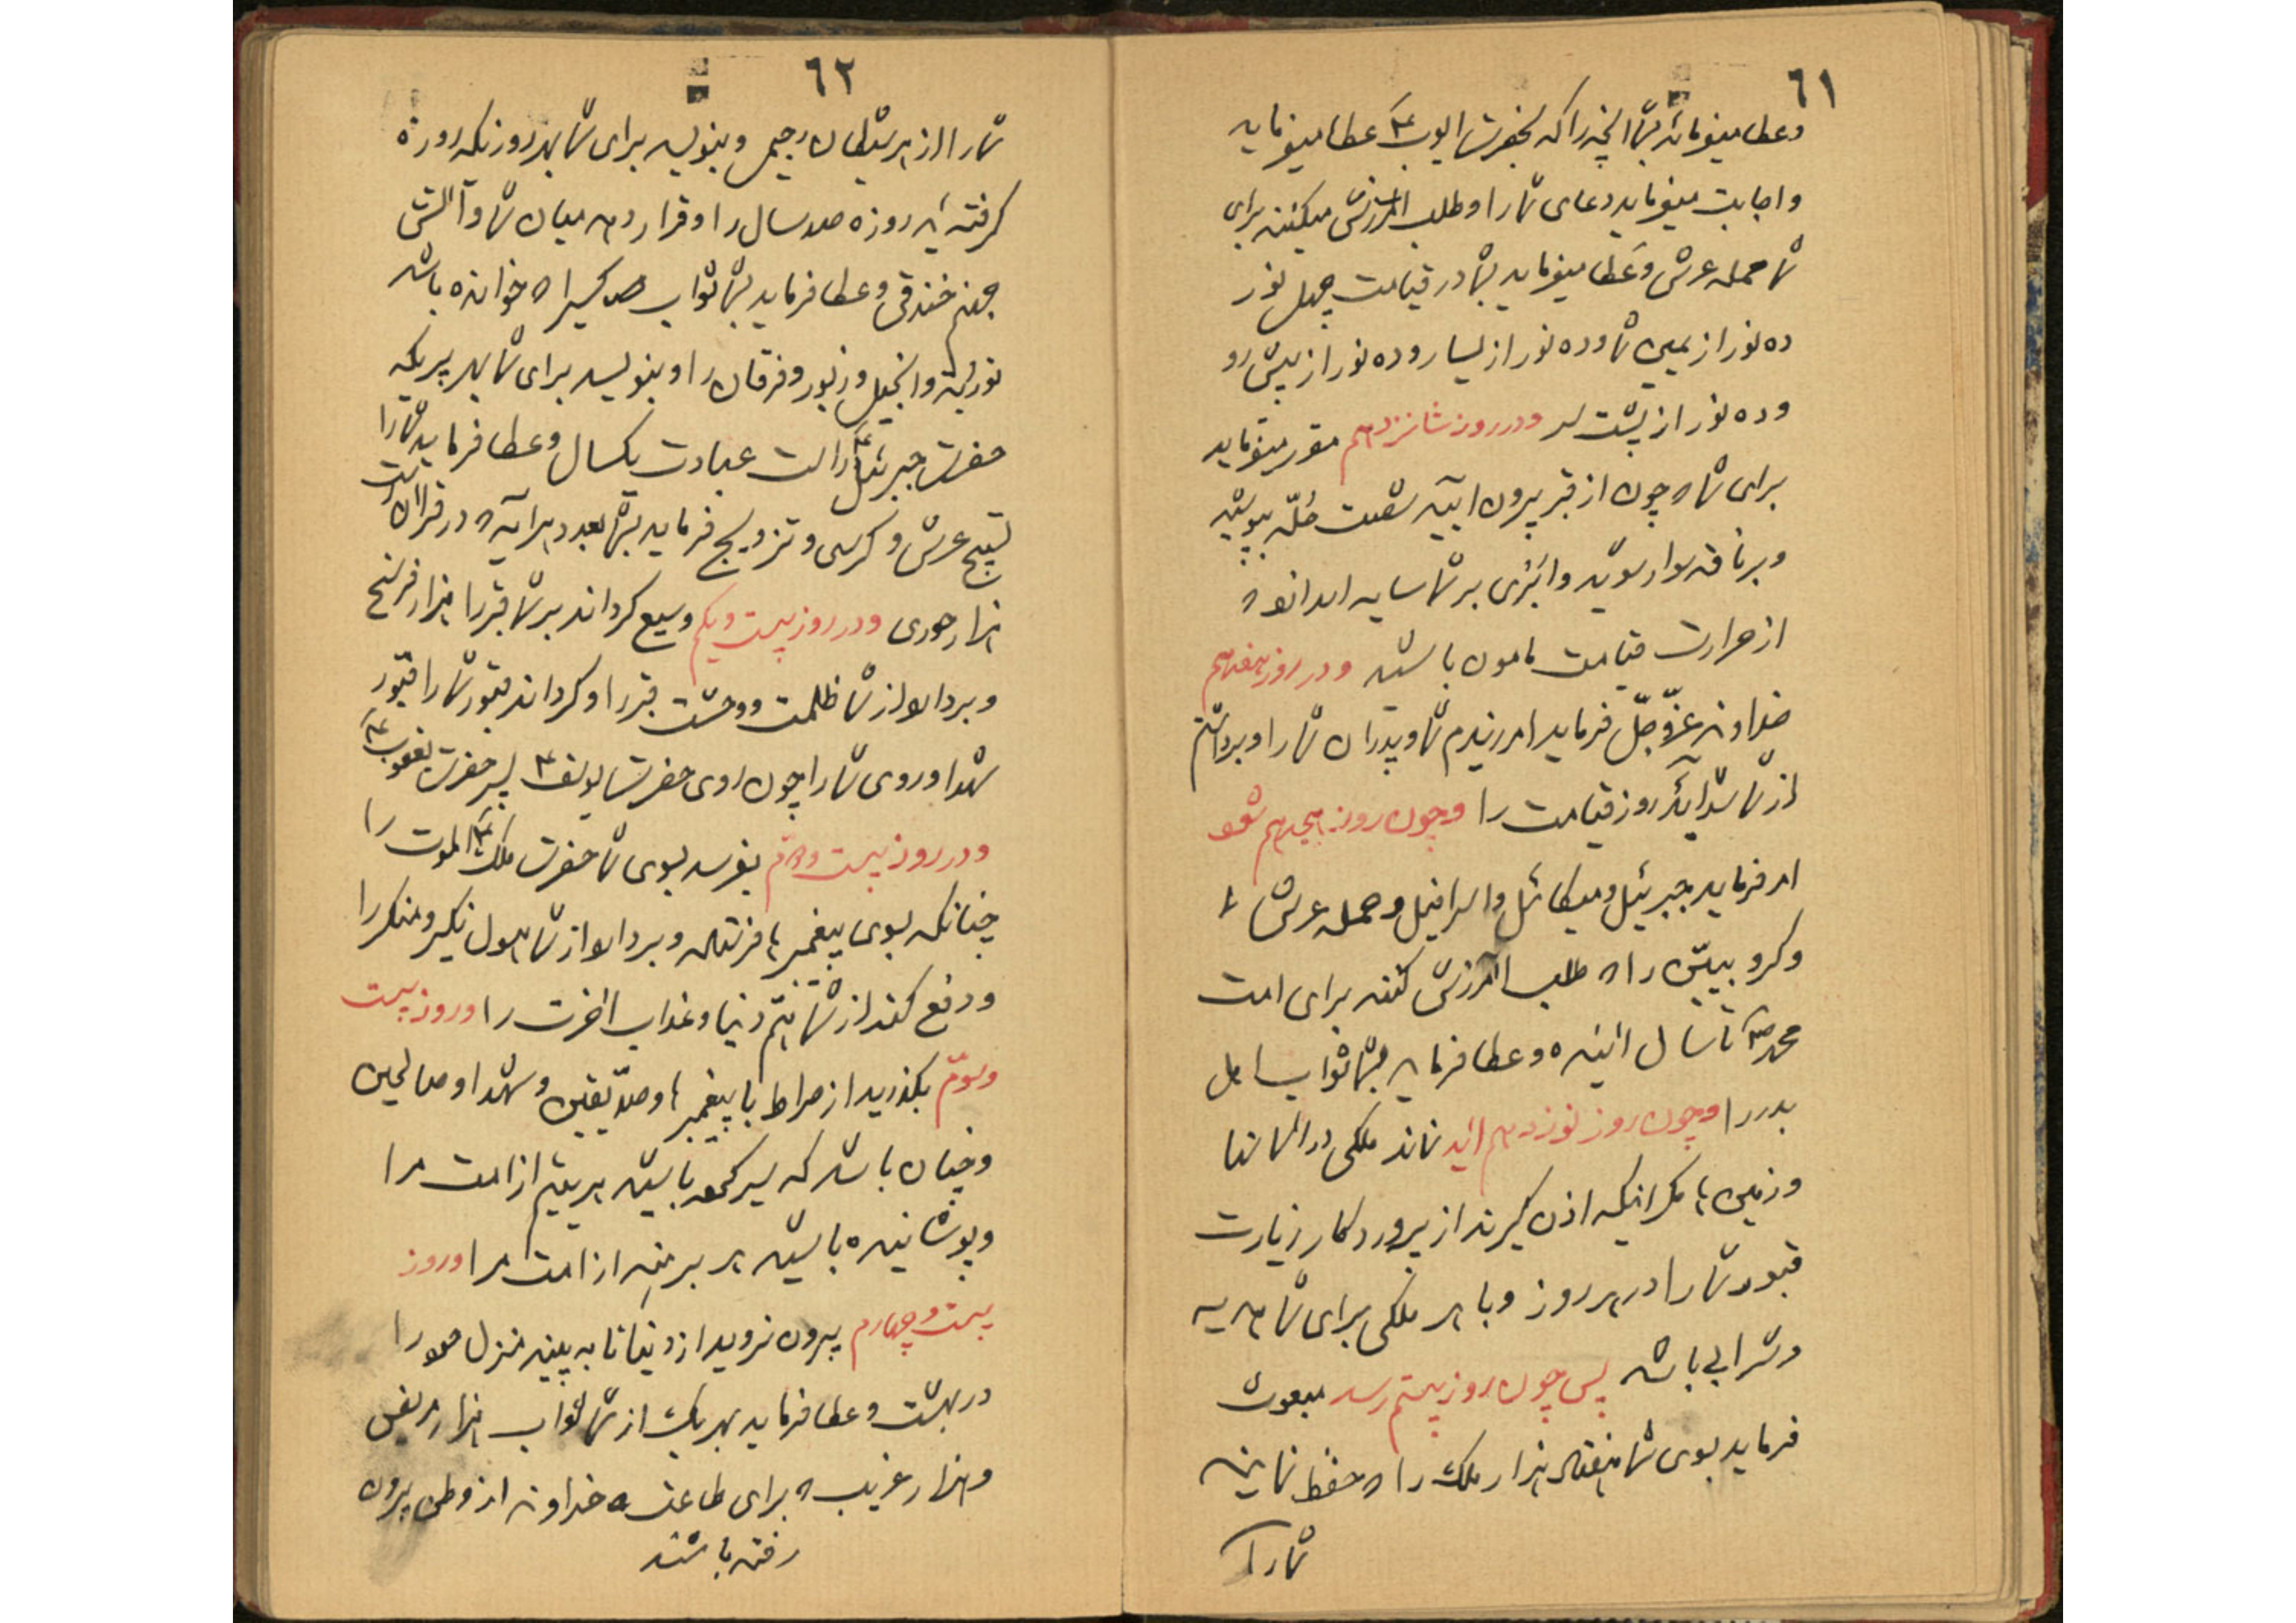 ٦١
وعطا میفرماید بشما آنچه را که بحضرت ایوب ع عطا میفرماید
و اجابت میفرماید دعای شما را و طلب آمرزش میکنند برای
شما حمله عرش و عطا میفرماید بشما در قیامت چهل نور
ده نور از یمین شما و ده نور از یسار و ده نور از پیش رو
و ده نور از پشت سر و در روز شانزدهم مقرر میفرماید
برای شما که چون از قبر بیرون آیید شصت حُلّه بپوشید
و بر ناقه سوار شوید و ابری بر شما سایه اندازد که
از حرارت قیامت مامون باشید و در روز هفدهم
خداوند عزّ و جلّ فرماید آمرزیدم شما و پدران شما را و برداشتم
از شما شداید روز قیامت را و چون روز هیجدهم شود
امر فرماید جبرئیل و میکائیل و اسرافیل و حمله عرش
و کروبیین را که طلب آمرزش کنند برای امت
محمد ص تا سال آینده و عطا فرماید بشما ثواب اهل
بدر را و چون روز نوزدهم آید نماند ملکی در آسمانها
و زمین ها مگر اینکه اذن گیرند از پروردگار زیارت
قبور شما را در هر روز و با هر ملکی برای شما هدیه
و شرابی باشد پس چون روز بیستم رسد مبعوث
فرماید بسوی شما هفتاد هزار ملک را که حفظ نمایند
شما را
٦٢
شما را از هر شیطان رجیم و بنویسد برای شما بهر روزیکه روزه
گرفته اید روزه صد سال را و قرار دهد میان شما و آتش
جهنم خندقی و عطا فرماید بشما ثواب هر کسیرا که خوانده باشد
توریة و انجیل و زبور و فرقان را و بنویسد برای شما بهر پریکه
حضرت جبرئیل ع راست عبادت یکسال و عطا فرماید شما را
تسبیح عرش و کرسی و تزویج فرماید بشما بعدد هر آیه که در قرآن است
هزار حوری و در روز بیست و یکم وسیع گرداند بر شما قبر را هزار فرسخ
و بردارد از شما ظلمت و وحشت قبر را و گرداند قبور شما را قبور
شهدا و روی شما را چون روی حضرت یوسف ع پسر حضرت یعقوب ع
و در روز بیست و دوّم بفرستد بسوی شما حضرت ملک الموت را
چنانکه بسوی پیغمبر ها فرستاد و بردارد از شما هول نکیر و منکر را
و دفع کند از شما همّ دنیا و عذاب آخرت را و روز بیست
و سوّم بگذرید از صراط با پیغمبر ها و صدّیقین و شهدا و صالحین
و چنان باشد که سیر کرده باشید هر یتیم از امت مرا
و پوشانیده باشید هر برهنه از امت مرا و روز
بیست و چهارم بیرون نروید از دنیا تا به بینید منزل خود را
در بهشت و عطا فرماید بهر یک از شما ثواب هزار مریض
و هزار غریب که برای طاعت خداوند از وطن بیرون
رفته باشند